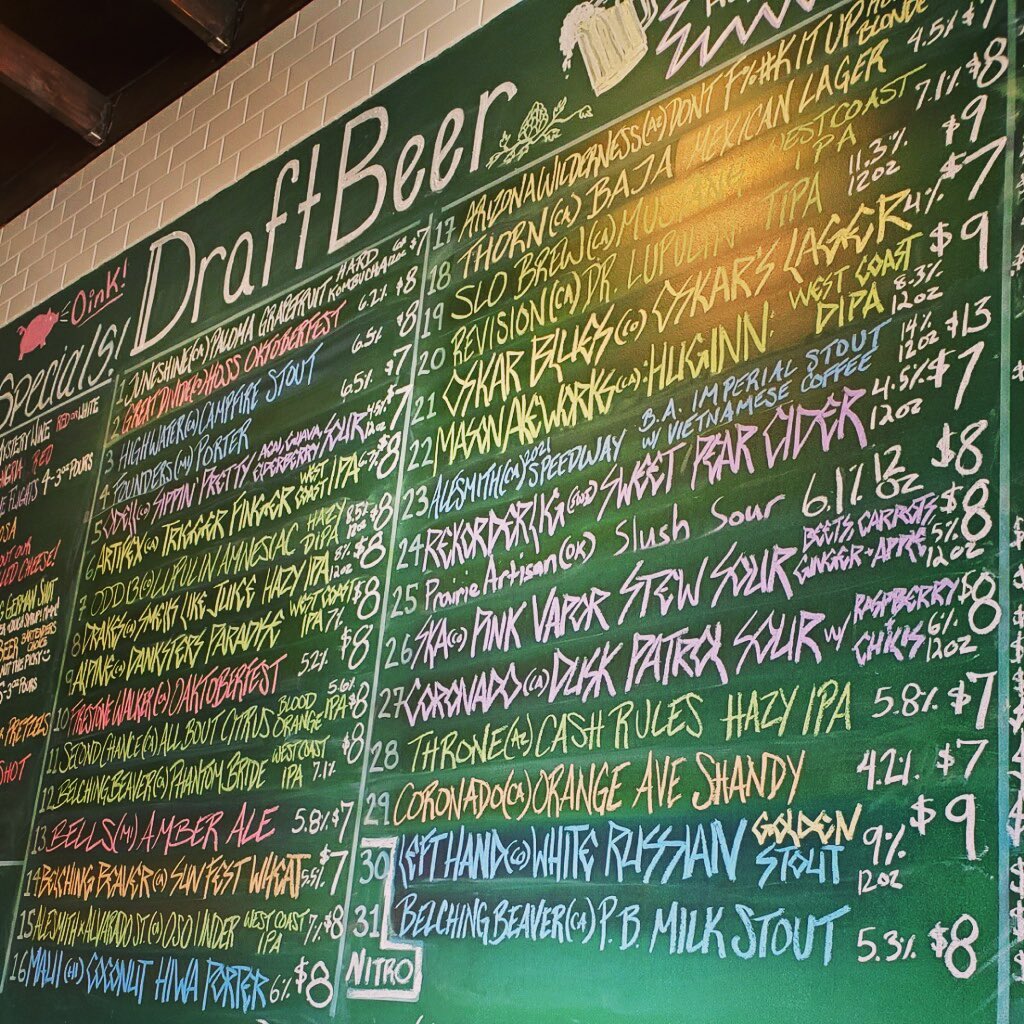 Oink!
Specials!
RED OR WHITE
RED
FLIGHTS 4-3oz POURS
CHEESE!
GERMAN
BEER
PRETZELS
SHOT
Draft Beer
1 JUNESHINE (CA) PALOMA GRAPEFRUIT HARD KOMBUCHA $7
2 GREAT DIVIDE (CO) HOSS OKTOBERFEST 6.2% $8
3 HIGH WATER (CA) CAMPFIRE STOUT 6.5% $8
4 FOUNDERS (MI) PORTER 6.5% $7
5 ODELL (CO) SIPPIN PRETTY ACAI, GUAVA, ELDERBERRY SOUR 4.5% $7
6 ARTIFEX (CA) TRIGGER FINGER WEST COAST IPA 6.7% $8
7 ODD 13 (CO) LUPULIN AMNESIAC HAZY DIPA 8.5% 12oz $8
8 DRAKES (CA) SMELLS LIKE JUICE HAZY IPA 8% 12oz $8
9 ALPINE (CA) DANKSTERS PARADISE WEST COAST IPA 7% $8
10 FIRESTONE WALKER (CA) OAKTOBERFEST 5.2% $8
11 SECOND CHANCE (CA) ALL BOUT CITRUS BLOOD ORANGE IPA 5.6% $8
12 BELCHING BEAVER (CA) PHANTOM BRIDE WEST COAST IPA 7.1% $8
13 BELLS (MI) AMBER ALE 5.8% $7
14 BELCHING BEAVER (CA) SUN FEST WHEAT 5.5% $7
15 ALESMITH x ALVARADO ST (CA) OSO UNDER WEST COAST IPA 7% $8
16 MAUI (HI) COCONUT HIWA PORTER 6% $8
17 ARIZONA WILDERNESS (AZ) DON'T F%#K IT UP BLONDE 4.5% $7
18 THORN (CA) BAJA MEXICAN LAGER
19 SLO BREW (CA) MUSTANG WEST COAST IPA 7.1% $8
20 REVISION (CA) DR. LUPULIN TIPA 11.3% 12oz $9
21 OSKAR BLUES (CO) OSKAR'S LAGER 4% $7
22 MASON ALEWORKS (CA): HUGINN: WEST COAST DIPA 8.3% 12oz $9
23 ALESMITH (CA) 2021 SPEEDWAY B.A. IMPERIAL STOUT W/ VIETNAMESE COFFEE 14% 12oz $13
24 REKORDERLIG (SWE) SWEET PEAR CIDER 4.5% 12oz $7
25 Prairie Artisan (OK) Slush Sour 6.1% 12 oz $8
26 SKA (CO) PINK VAPOR STEW SOUR BEETS, CARROTS, GINGER + APPLE 5% 12oz $8
27 CORONADO (CA) DUSK PATROL SOUR W/ RASPBERRY + 6% 12oz $8
28 THRONE (AZ) CASH RULES HAZY IPA 5.8% $7
29 CORONADO (CA) ORANGE AVE SHANDY 4.2% $7
30 LEFT HAND (CO) WHITE RUSSIAN GOLDEN STOUT 9% 12oz $9
31 BELCHING BEAVER (CA) P.B. MILK STOUT 5.3% $8
NITRO